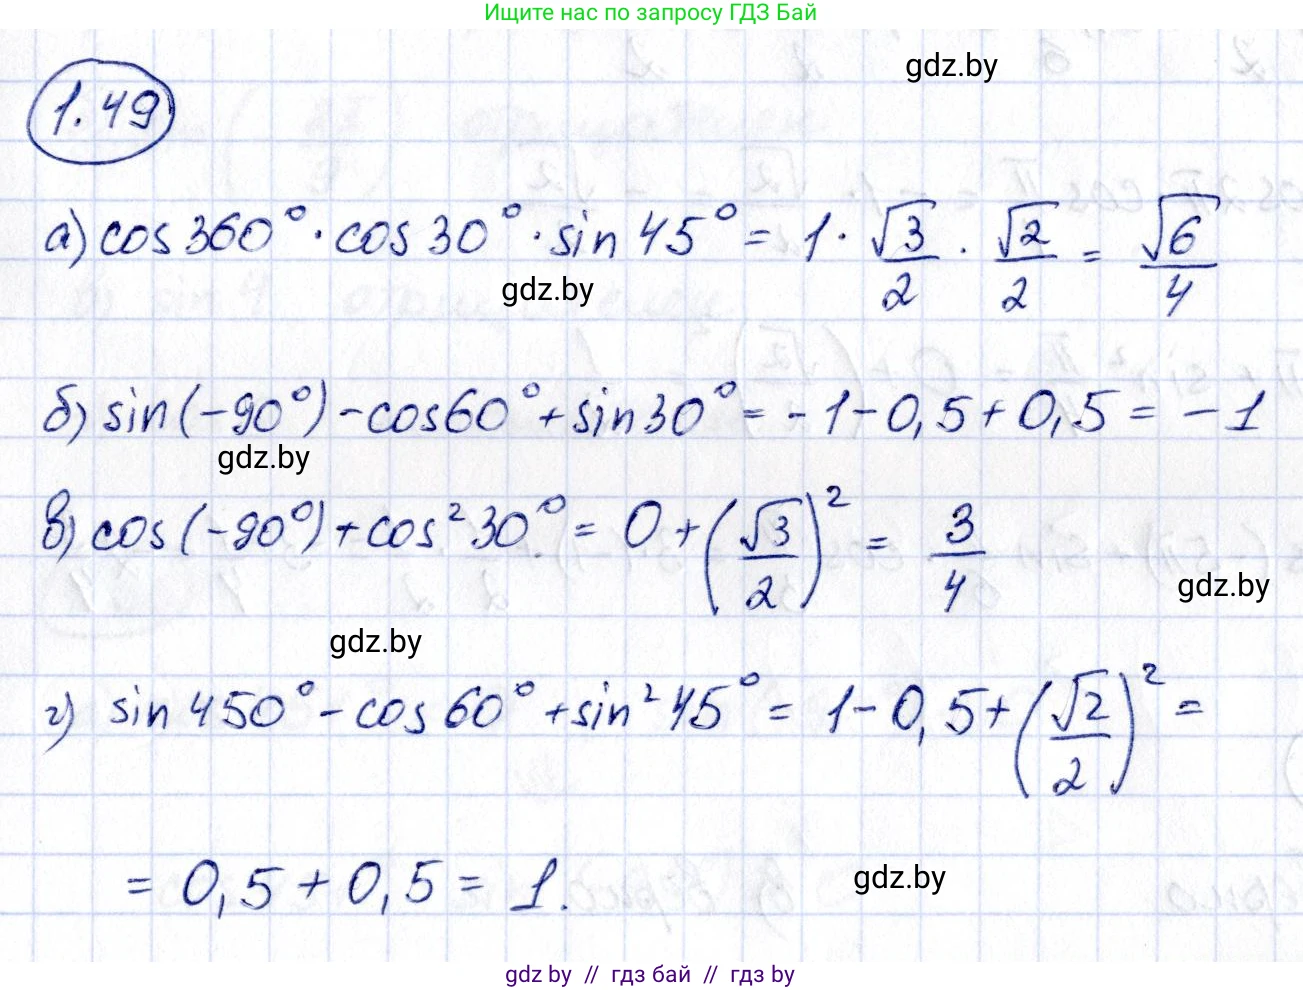 Ищите нас по запросу ГДЗ Бай
gdz.by
1.49
а) cos 360° · cos 30° · sin 45° = 1 · √3/2 · √2/2 = √6/4
gdz.by
б) sin(-90°) - cos60° + sin30° = -1 - 0,5 + 0,5 = -1
gdz.by
в) cos(-90°) + cos²30° = 0 + (√3/2)² = 3/4
gdz.by
gdz.by
г) sin 450° - cos 60° + sin²45° = 1 - 0,5 + (√2/2)² =
= 0,5 + 0,5 = 1.
gdz.by
gdz by // гдз бай // гдз by